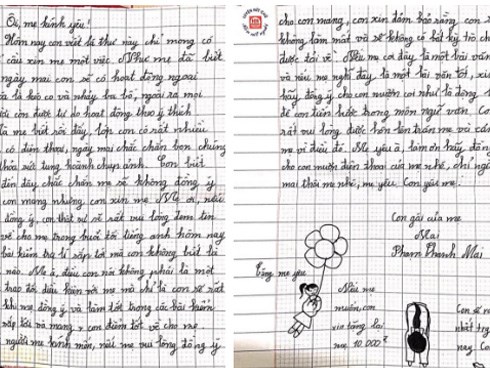 Ôi, mẹ kính yêu!
Hôm nay con viết lá thư này chỉ mong có
cầu xin mẹ một việc. Như mẹ đã biết
ngày mai con sẽ có hoạt động ngoài
là kéo co và nhảy ba bố, ngoài ra mọi
con được tự do hoạt động theo ý thích
là mẹ biết rồi đấy, lớp con có rất nhiều
có điện thoại, ngày mai chắc chắn bọn chúng
thỏa sức tung hoành chụp ảnh. Con biết
đến đây chắc chắn mẹ sẽ không đồng ý
con mang nhưng, con xin mẹ. Mẹ ơi, nếu
đồng ý con thật sự sẽ rất vui lòng đem tin
về cho mẹ trong buổi tối tiếng anh hôm nay
bài kiểm tra lí sắp tới mà con không biết là
nào. Mẹ à, điều con nói không phải là một
trao đổi, điều kiện với mẹ mà chỉ là con sẽ rất
khi mẹ đồng ý và làm tốt trong các bài kiểm
sắp tới và mang con điểm tốt về cho mẹ
người mẹ kính mến, nếu mẹ vui lòng đồng ý
cho con mang, con xin đảm bảo rằng, con
không làm mất và sẽ không có bất kỳ trò
được tái vẽ. Nếu mẹ coi đây là một bài văn
và nếu mẹ nghĩ đây là một bài văn tốt,
hãy đồng ý cho con mượn coi như là động
để con tiến bước trong môn ngữ văn.
rất vui lòng được hôn lên trán mẹ và
mẹ vì điều đó. Mẹ yêu à, làm ơn hãy
cho con mượn điện thoại của mẹ nhé, chỉ
mai thôi mẹ nhé, mẹ yêu. Con yêu mẹ.
Con gái của mẹ
Mai
Phạm Thanh Mai
mẹ yêu
Nếu mẹ
muốn, con
xin tặng lại
mẹ 10.000đ
Con
nhất
này. Con